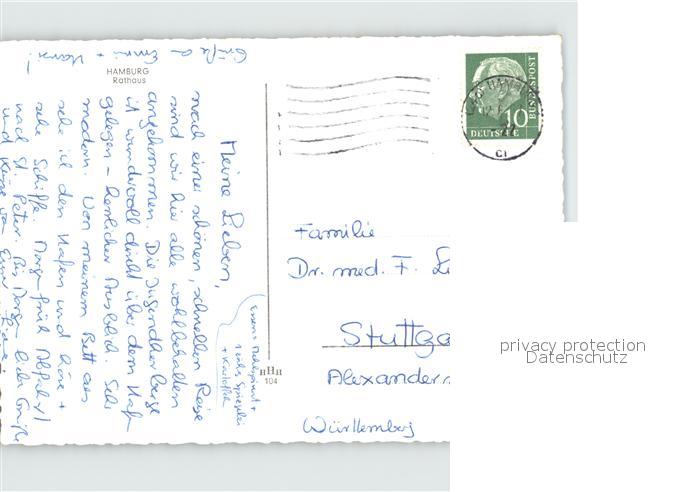 Grüße a Emmi + Hansi!
HAMBURG
Rathaus
Meine Lieben,
nach einer schönen, schnellen Reise
sind wir hie alle wohlbehalten
angekommen. Die Jugendherberge
ist wundervoll direkt über dem Hafen
gelegen - herrlicher Ausblick. Sehr
modern. Von meinem Bett aus
sehe ich den Hafen und höre +
sehe Schiffe. Morgen früh Abfahrt
nach St. Peter. Bis Morgen liebe Grüße
und Küsse von Eurer
+ Kartoffeln
HHH
104
10
DEUTSCHE
BUNDESPOST
HAMBURG
Familie
Dr. med. F.
Stuttga
Alexander
Württemberg
privacy protection
Datenschutz